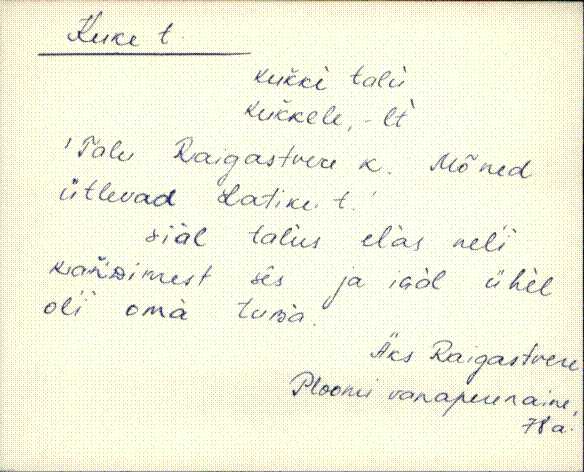 Kuke t.
kukki talu
kukkele, -lt
'Talu Raigastvere k. Mõned
ütlevad Latike t.'
siäl talus elas neli
ses ja igäl ühel
oli oma tuba.
Äks Raigastvere
Ploomi vanaperenaine,
78 a.